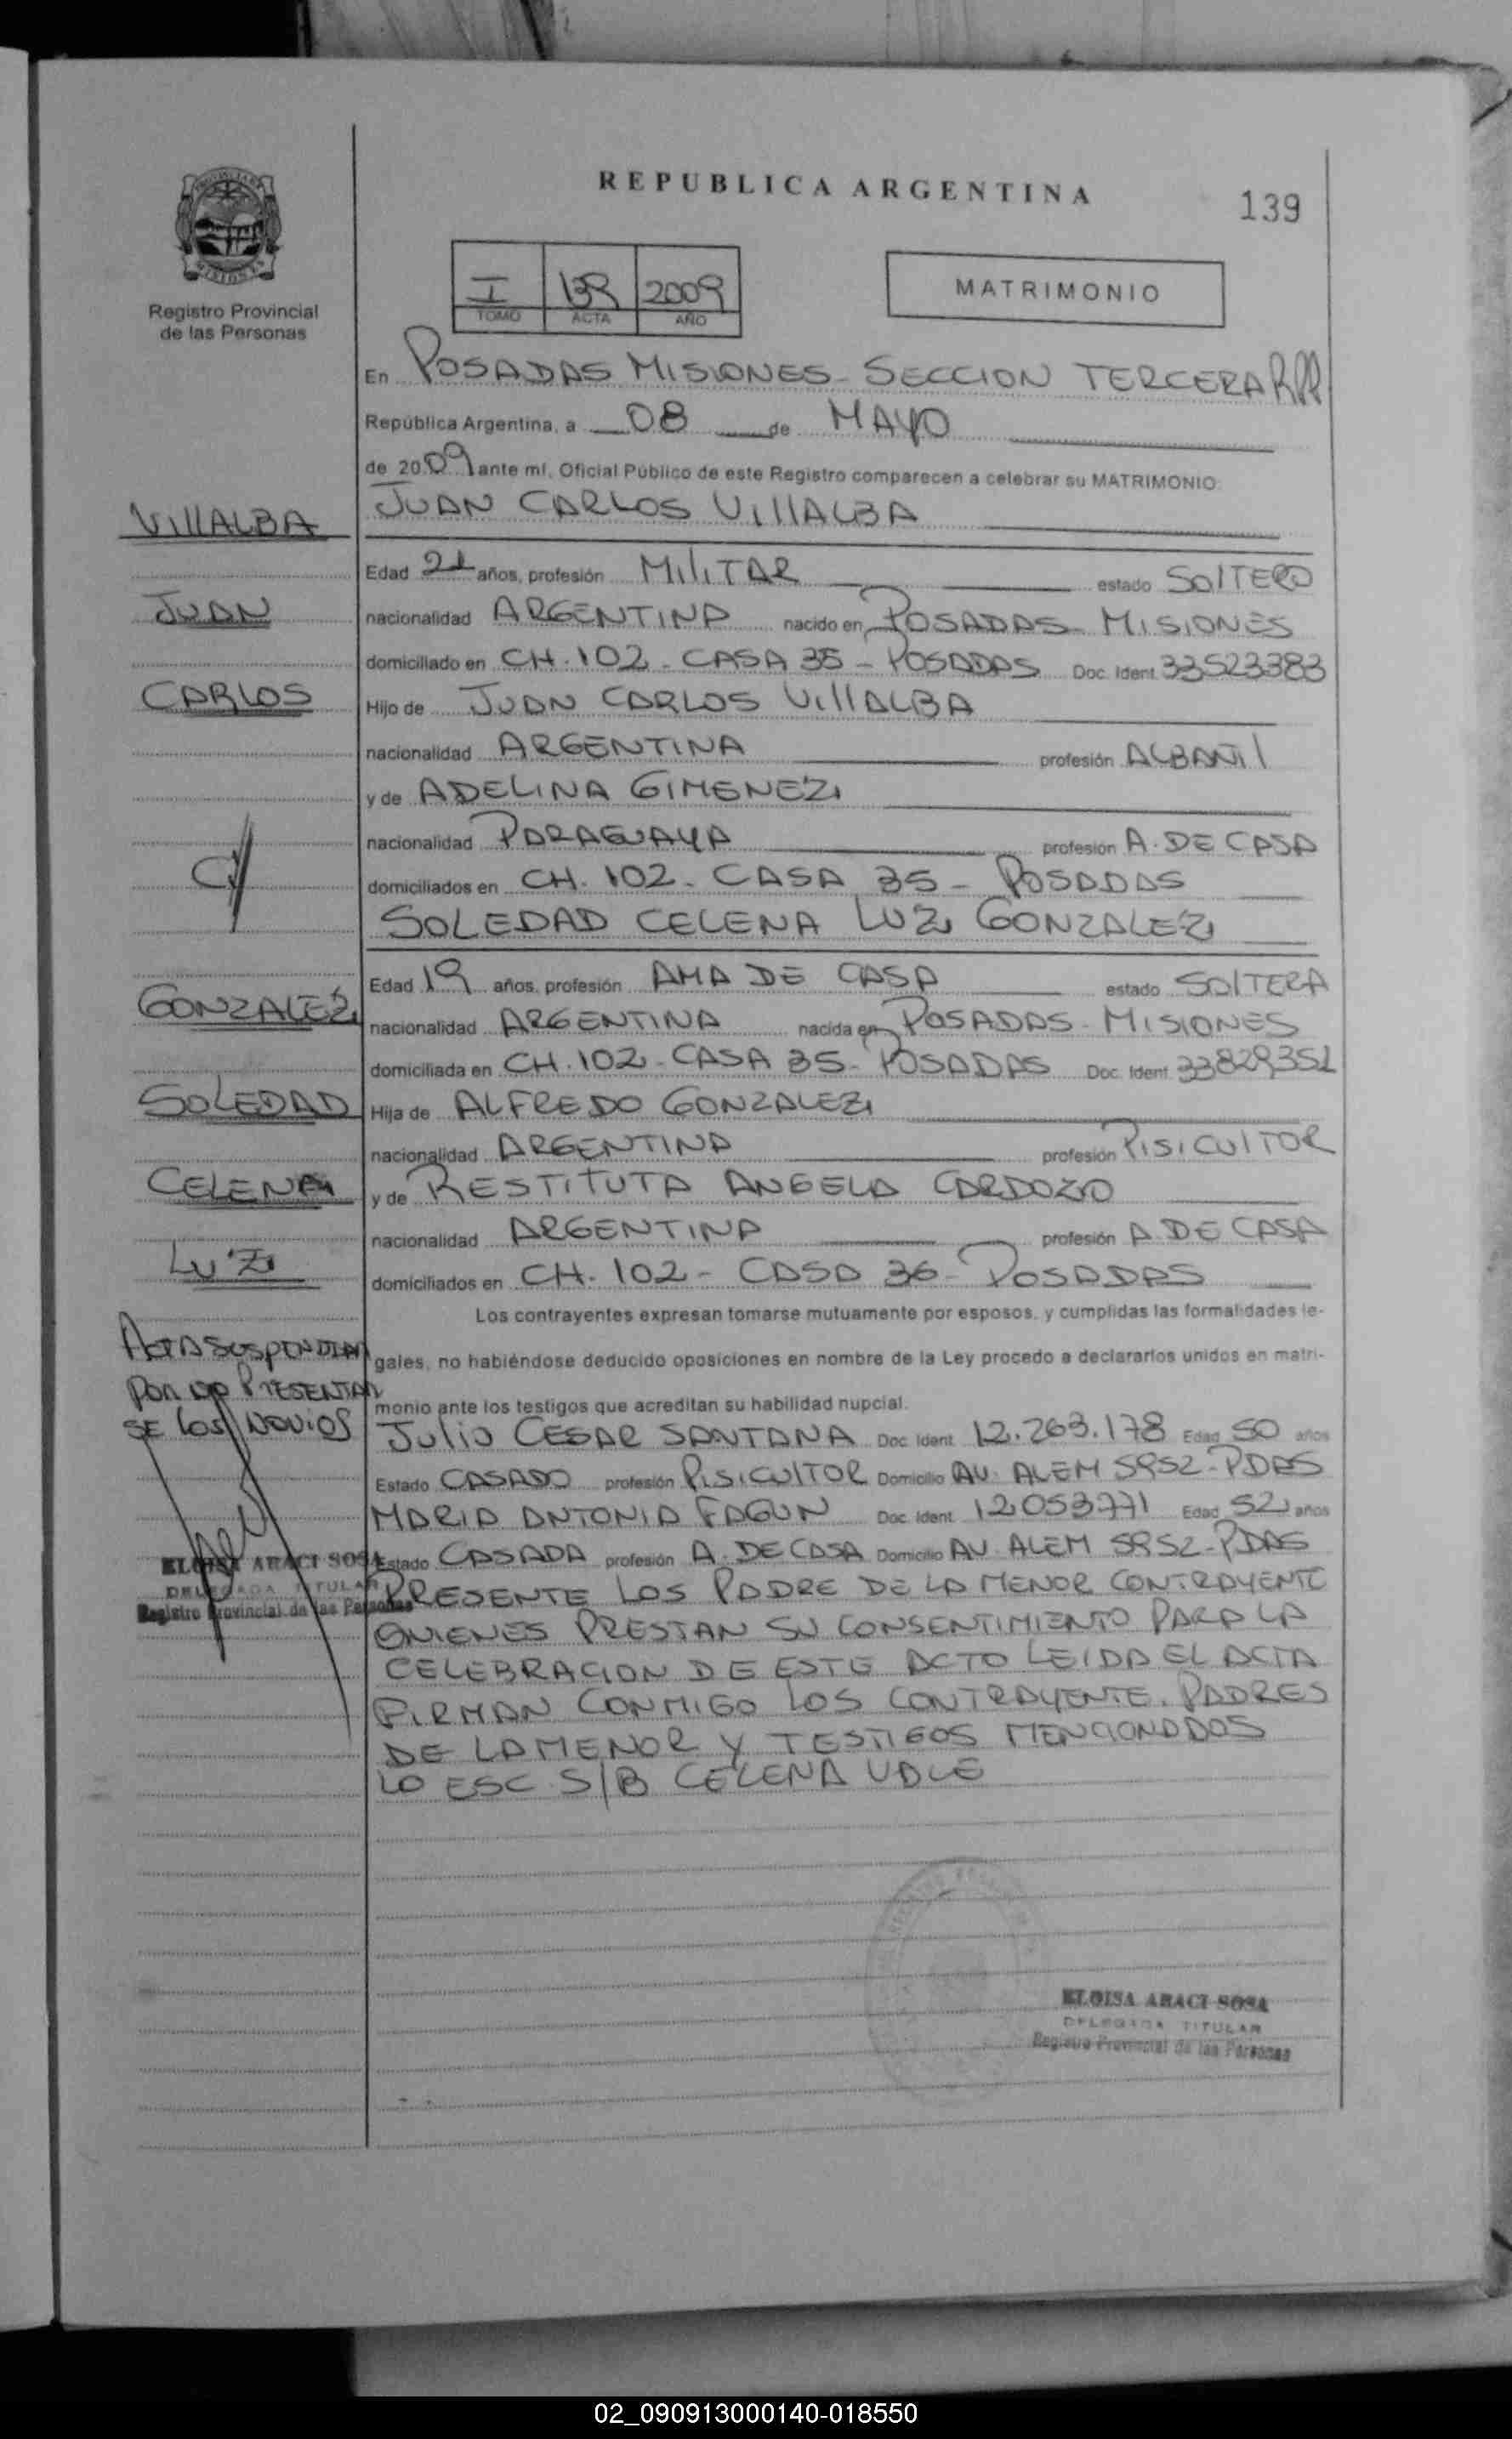 REPUBLICA ARGENTINA
139
Registro Provincial
de las Personas
I 139 2009
TOMO ACTA AÑO
MATRIMONIO
En POSADAS MISIONES - SECCION TERCERA RPP
República Argentina, a 08 de MAYO
de 2009 ante mí, Oficial Público de este Registro comparecen a celebrar su MATRIMONIO:
VILLALBA
JUAN CARLOS VILLALBA
Edad 21 años, profesión MILITAR estado SOLTERO
JUAN
nacionalidad ARGENTINA nacido en POSADAS - MISIONES
domiciliado en CH. 102 - CASA 35 - POSADAS Doc. Ident. 33523383
CARLOS
Hijo de JUAN CARLOS VILLALBA
nacionalidad ARGENTINA profesión ALBAÑIL
y de ADELINA GIMENEZ
nacionalidad PARAGUAYA profesión A. DE CASA
C/
domiciliados en CH. 102 - CASA 35 - POSADAS
SOLEDAD CELENA LUZ GONZALEZ
Edad 19 años, profesión AMA DE CASA estado SOLTERA
GONZALEZ
nacionalidad ARGENTINA nacida en POSADAS - MISIONES
domiciliada en CH. 102 - CASA 35 - POSADAS Doc. Ident. 33829352
SOLEDAD
Hija de ALFREDO GONZALEZ
nacionalidad ARGENTINA profesión PISICULTOR
CELENA
y de RESTITUTA ANGELA CARDOZO
nacionalidad ARGENTINA profesión A DE CASA
LUZ
domiciliados en CH. 102 - CASA 36 - POSADAS
Los contrayentes expresan tomarse mutuamente por esposos, y cumplidas las formalidades le-
gales, no habiéndose deducido oposiciones en nombre de la Ley procedo a declararlos unidos en matri-
monio ante los testigos que acreditan su habilidad nupcial.
ACTA SUSPENDIDA
POR NO PRESENTAR
SE LOS NOVIOS
JULIO CESAR SANTANA Doc. Ident. 12.263.178 Edad 50 años
Estado CASADO profesión PISICULTOR Domicilio AV. ALEM 5952 - PDAS
MARIA ANTONIA FAGUN Doc. Ident. 12053771 Edad 52 años
Estado CASADA profesión A. DE CASA Domicilio AV. ALEM 5952 - PDAS
ELOISA ARACI SOSA
DELEGADA TITULAR
Registro Provincial de las Personas
PRESENTE LOS PADRE DE LA MENOR CONTRAYENTE
QUIENES PRESTAN SU CONSENTIMIENTO PARA LA
CELEBRACION DE ESTE ACTO LEIDA EL ACTA
FIRMAN CONMIGO LOS CONTRAYENTE. PADRES
DE LA MENOR Y TESTIGOS MENCIONADOS
LO ESC. S/B CELENA VALE
ELOISA ARACI SOSA
DELEGADA TITULAR
Registro Provincial de las Personas
02_090913000140-018550